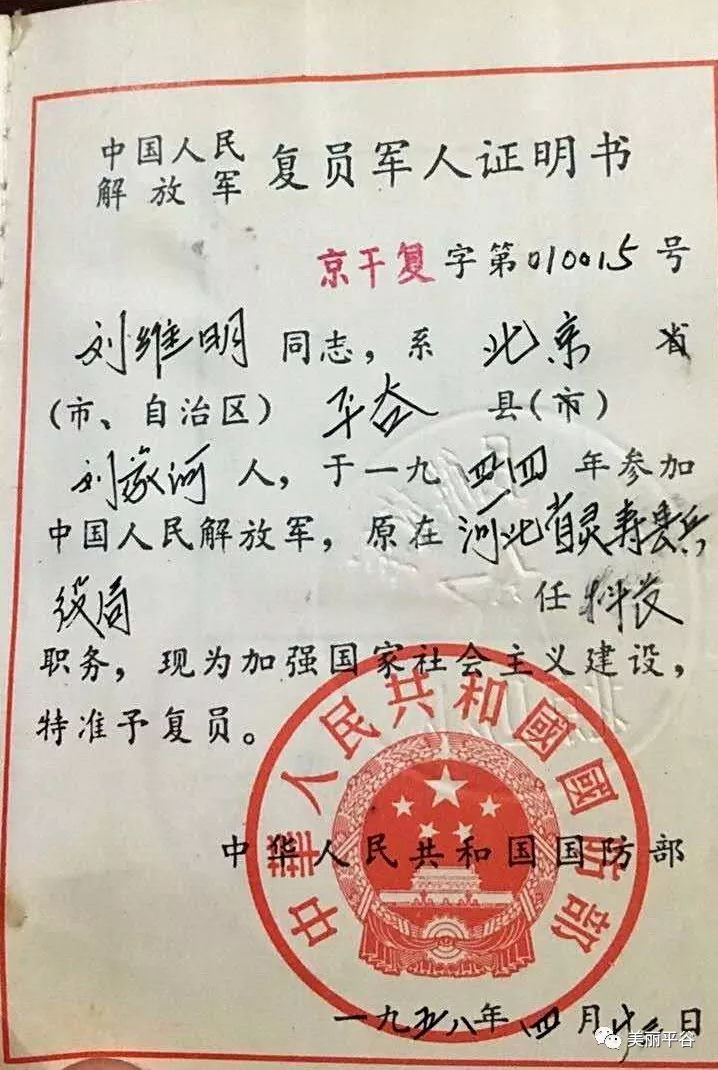 中国人民
解放军 复员军人证明书
京干复字第010015号
刘维明同志，系 北京 省
(市、自治区) 平谷 县(市)
刘家河人，于一九四四年参加
中国人民解放军，原在河北省灵寿县兵
役局 任科长
职务，现为加强国家社会主义建设，
特准予复员。
中华人民共和国国防部
中華人民共和國國防部
一九五八年四月 日
美丽平谷